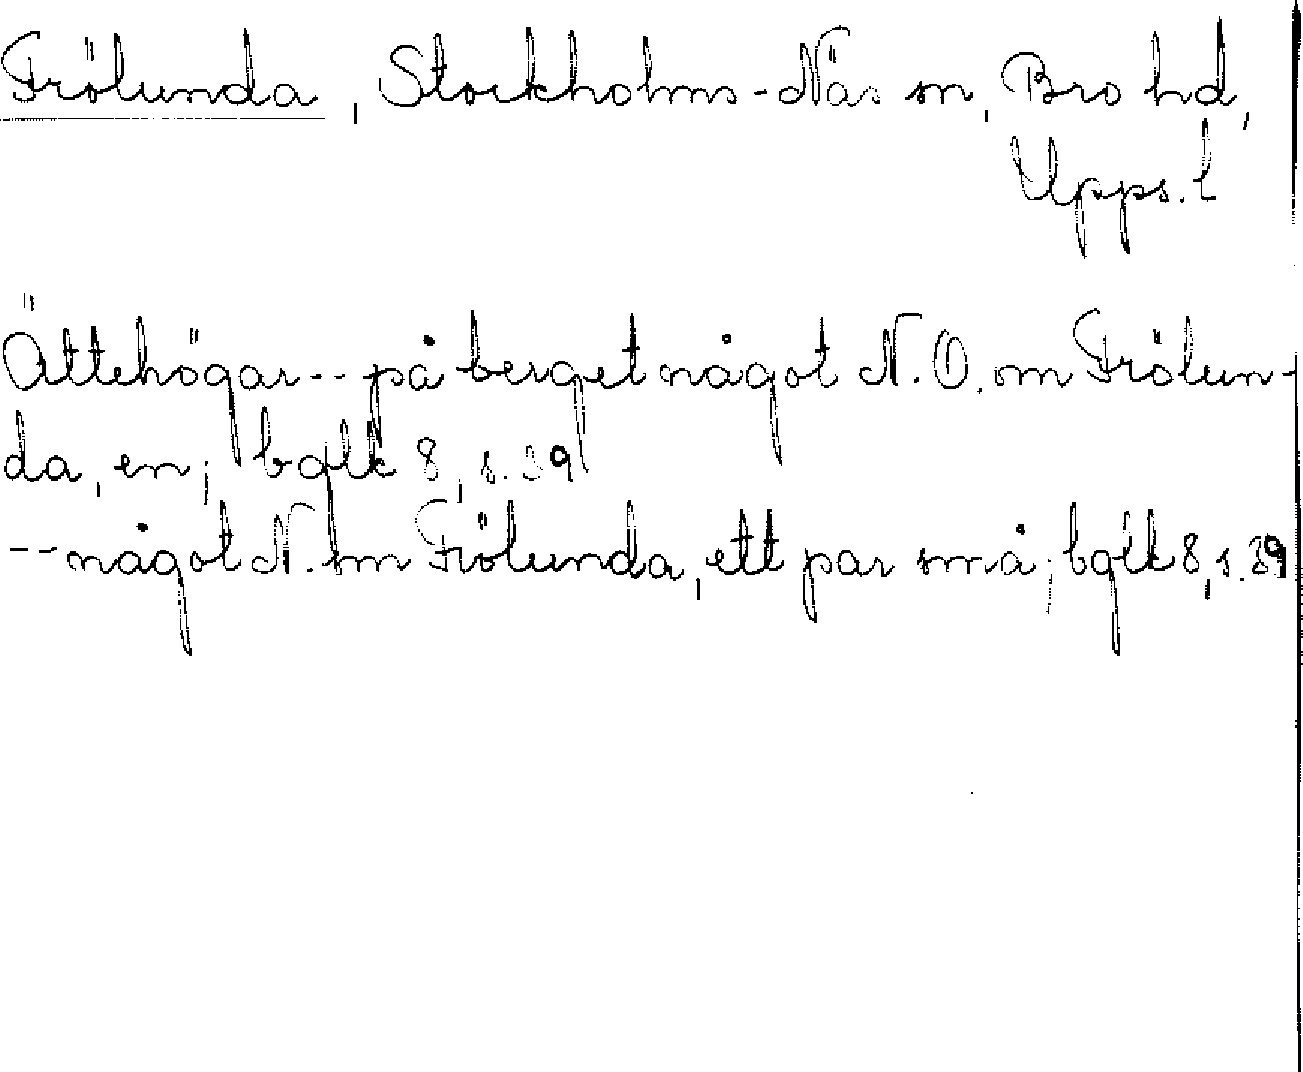 Frölunda, Stockholms-Näs sn, Bro hd,
Upps. l
Ättehögar -- på berget något N.O. om Frölun-
da, en; bglk 8, s. 39
-- något N. om Frölunda, ett par små; bglk 8, s. 39